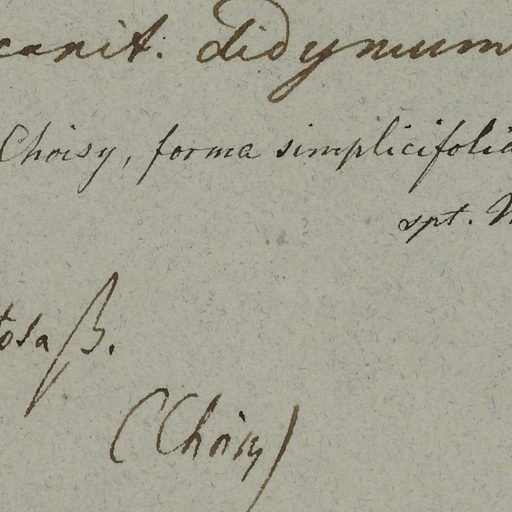 canit. didymum
Choisy, forma simplicifolia
spt.
tosa β.
(Choisy)